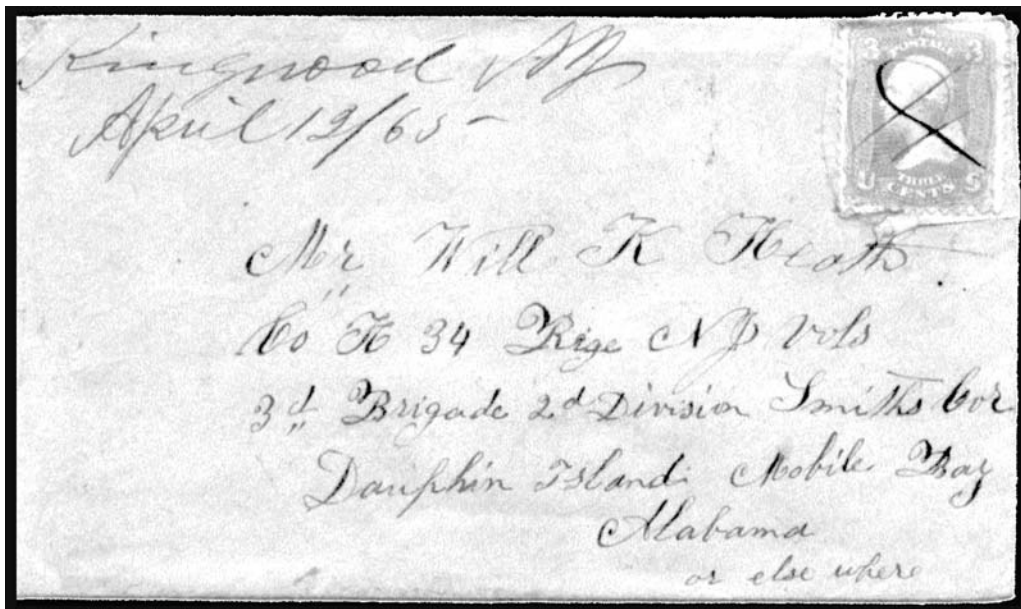 Kingwood NJ
April 12/65
3 U.S. 3
POSTAGE
THREE
U CENTS S
Mr Will K Heath
Co H 34 Rige NJ Vols
3d Brigade 2d Division Smiths Cor
Dauphin Island Mobile Bay
Alabama
or else where